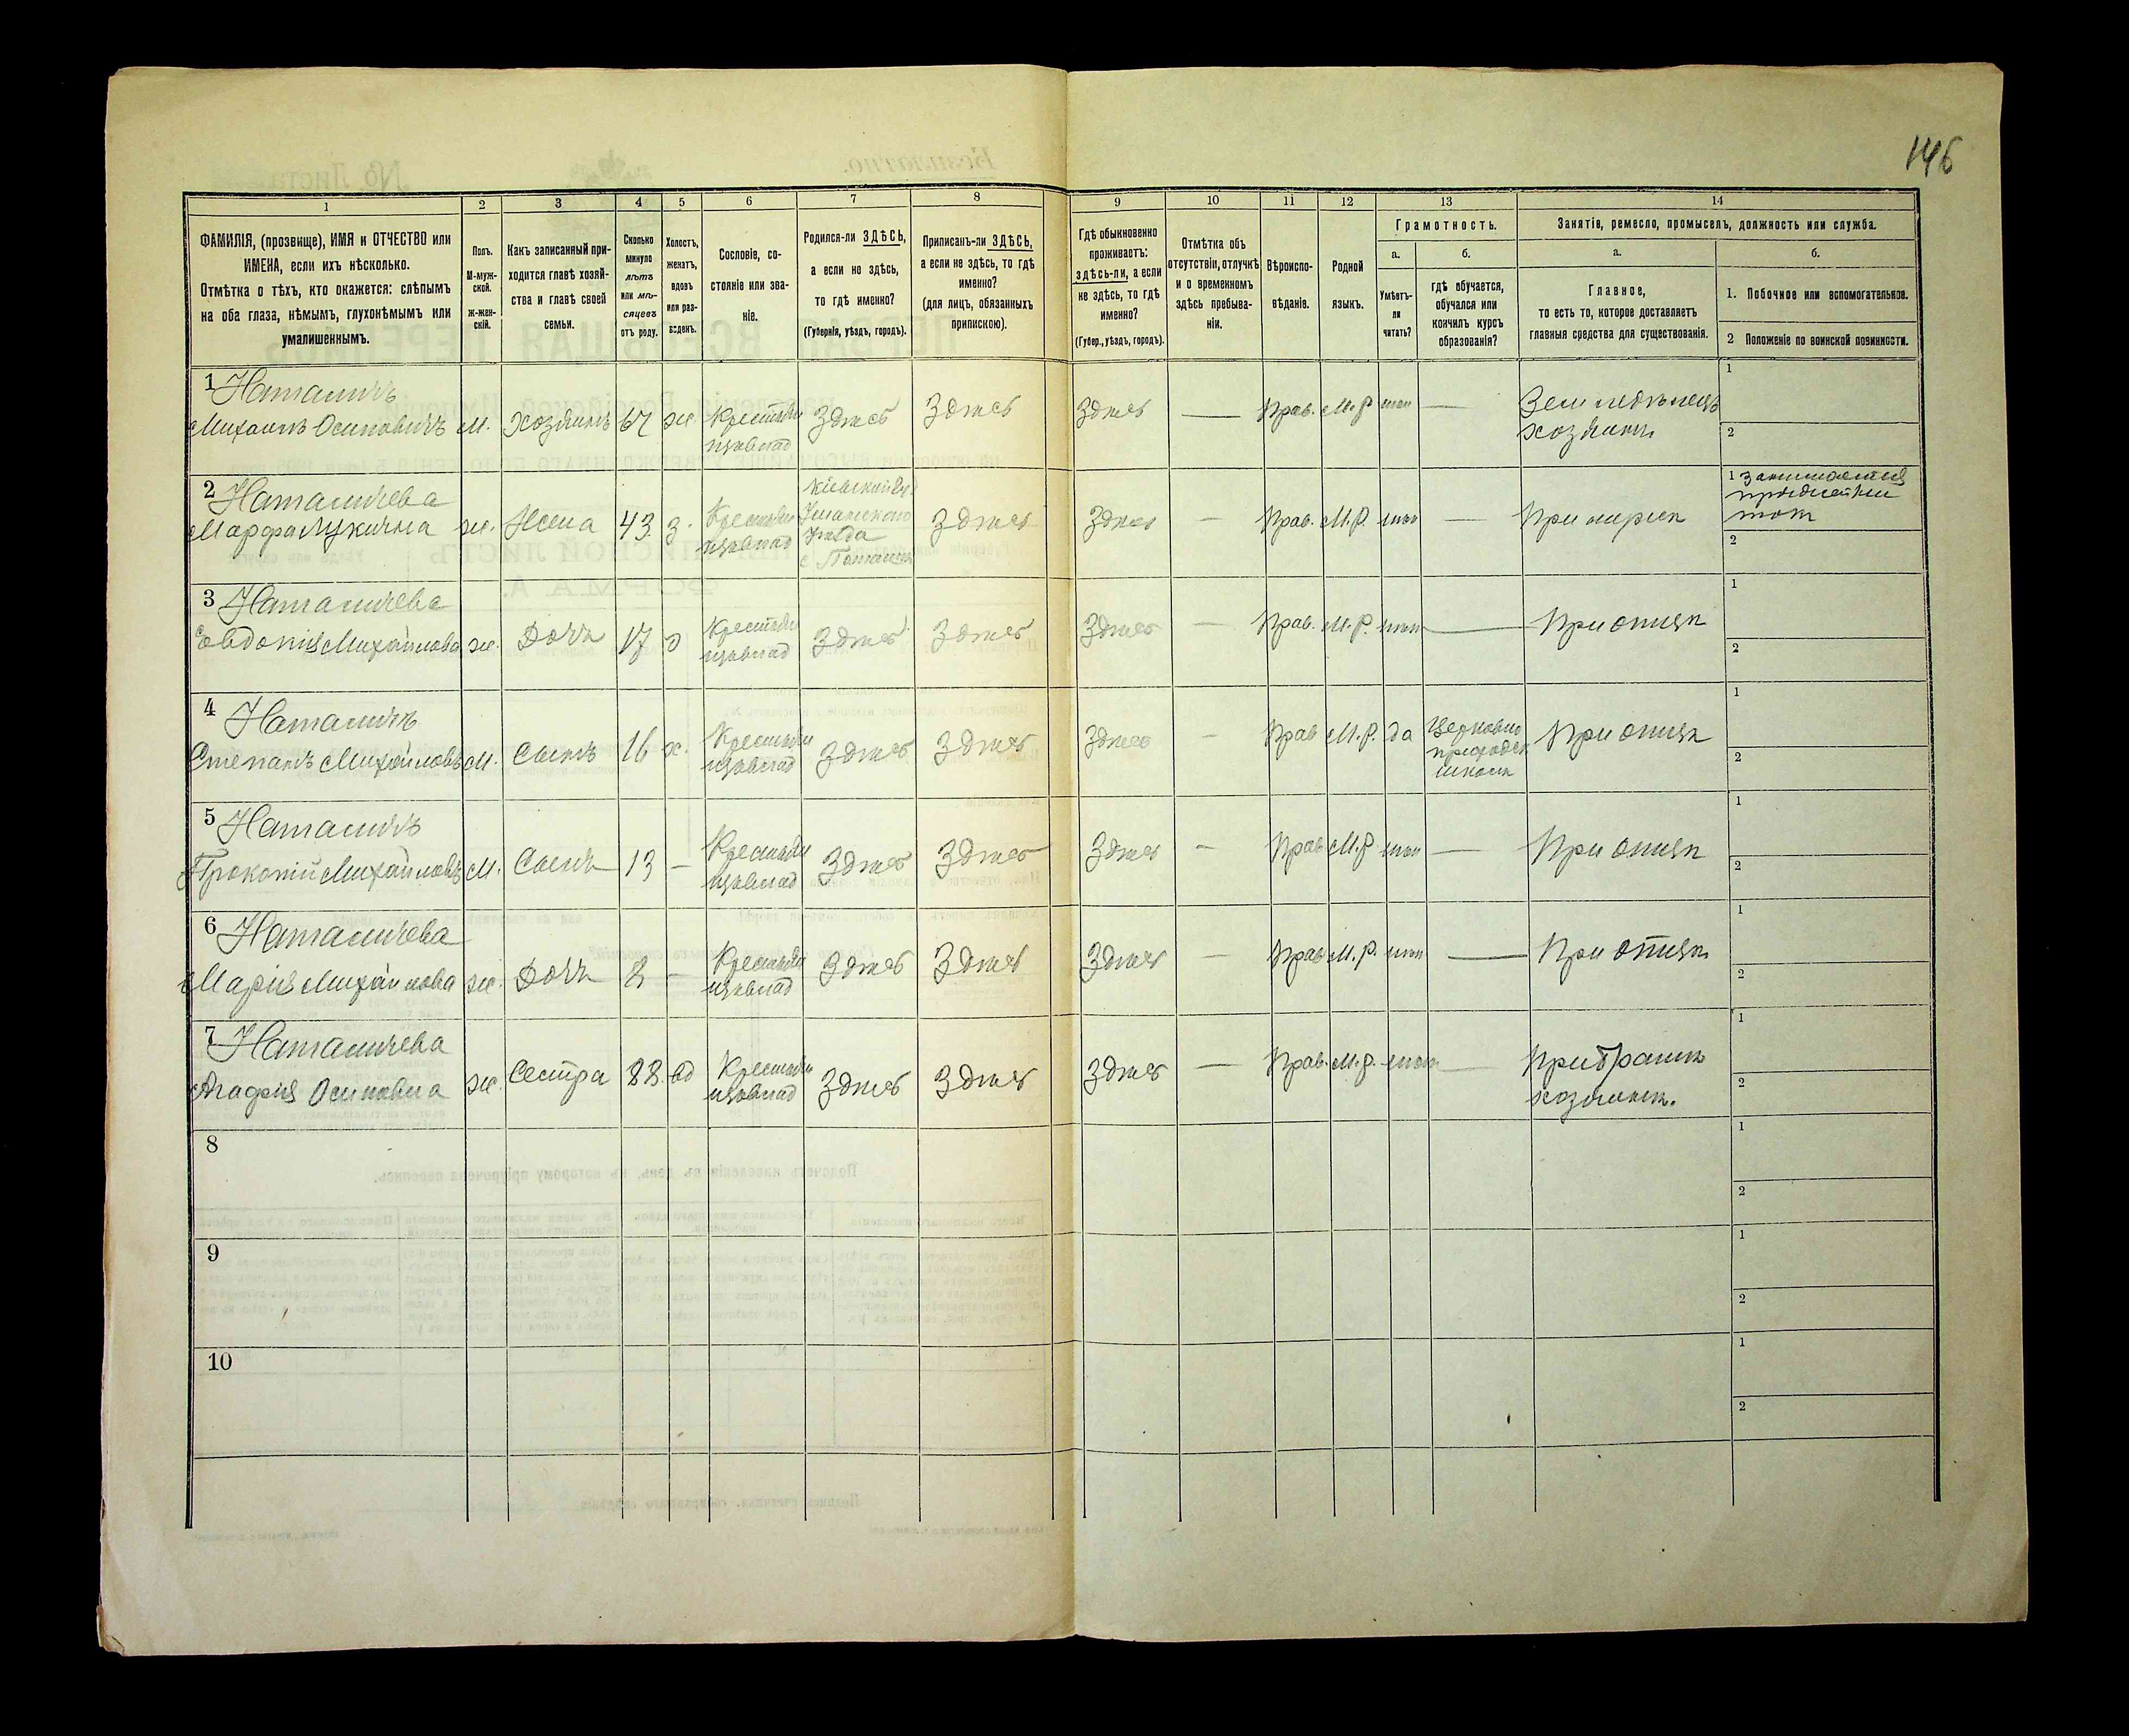 146
1
2
3
4
5
6
7
8
9
10
11
12
13
14
ФАМИЛІЯ, (прозвище), ИМЯ и ОТЧЕСТВО или
ИМЕНА, если ихъ нѣсколько.
Отмѣтка о тѣхъ, кто окажется: слѣпымъ
на оба глаза, нѣмымъ, глухонѣмымъ или
умалишеннымъ.
Полъ.
М-муж-
ской.
Ж-жен-
скій.
Какъ записанный при-
ходится главѣ хозяй-
ства и главѣ своей
семьи.
Сколько
минуло
лѣтъ
или мѣ-
сяцевъ
отъ роду.
Холостъ,
женатъ,
вдовъ
или раз-
веденъ.
Сословіе, со-
стояніе или зва-
ніе.
Родился-ли ЗДѢСЬ,
а если не здѣсь,
то гдѣ именно?
(Губернія, уѣздъ, городъ).
Приписанъ-ли ЗДѢСЬ,
а если не здѣсь, то гдѣ
именно?
(для лицъ, обязанныхъ
припискою).
Гдѣ обыкновенно
проживаетъ:
здѣсь-ли, а если
не здѣсь, то гдѣ
именно?
(Губер., уѣздъ, городъ).
Отмѣтка объ
отсутствіи, отлучкѣ
и о временномъ
здѣсь пребыва-
ніи.
Вѣроиспо-
вѣданіе.
Родной
языкъ.
Грамотность.
а.
Умѣетъ-
ли
читать?
б.
гдѣ обучается,
обучался или
кончилъ курсъ
образованія?
Занятія, ремесло, промыселъ, должность или служба.
а.
Главное,
то есть то, которое доставляетъ
главныя средства для существованія.
б.
1. Побочное или вспомогательное.
2 Положеніе по воинской повинности.
1
Михаилъ Осиповичъ
м.
Хозяинъ
67
ж.
Здѣсь
Здѣсь
Здѣсь
—
Прав.
М.р.
нѣт
—
Земледѣлецъ
хозяинъ
1
2
2
Марфа Лукична
ж.
Жена
43
з.
Уманского
Уѣзда
Здѣсь
Здѣсь
—
Прав.
М.р.
нѣт
—
При мужѣ
1 Занимается
2
3
Евдокія Михайлова
ж.
Дочь
17
Здѣсь
Здѣсь
Здѣсь
—
Прав.
М.р.
нѣт
—
При отцѣ
1
2
4
Степанъ Михайловъ
м.
Сынъ
16
х.
Здѣсь
Здѣсь
Здѣсь
—
Прав
М.р.
да
Церковно
приходск
школѣ
При отцѣ
1
2
5
Прокопій Михайловъ
м.
Сынъ
13
—
Здѣсь
Здѣсь
Здѣсь
—
Прав
М.р
нѣт
—
При отцѣ
1
2
6
Марія Михайлова
ж.
Дочь
8
—
Здѣсь
Здѣсь
Здѣсь
—
Прав
М.р.
нѣт
—
При отцѣ
1
2
7
Агафія Осиповна
ж.
Сестра
88
вд
Здѣсь
Здѣсь
Здѣсь
—
Прав.
М.р.
нѣт
—
При братѣ
хозяинѣ.
1
2
8
1
2
9
1
2
10
1
2